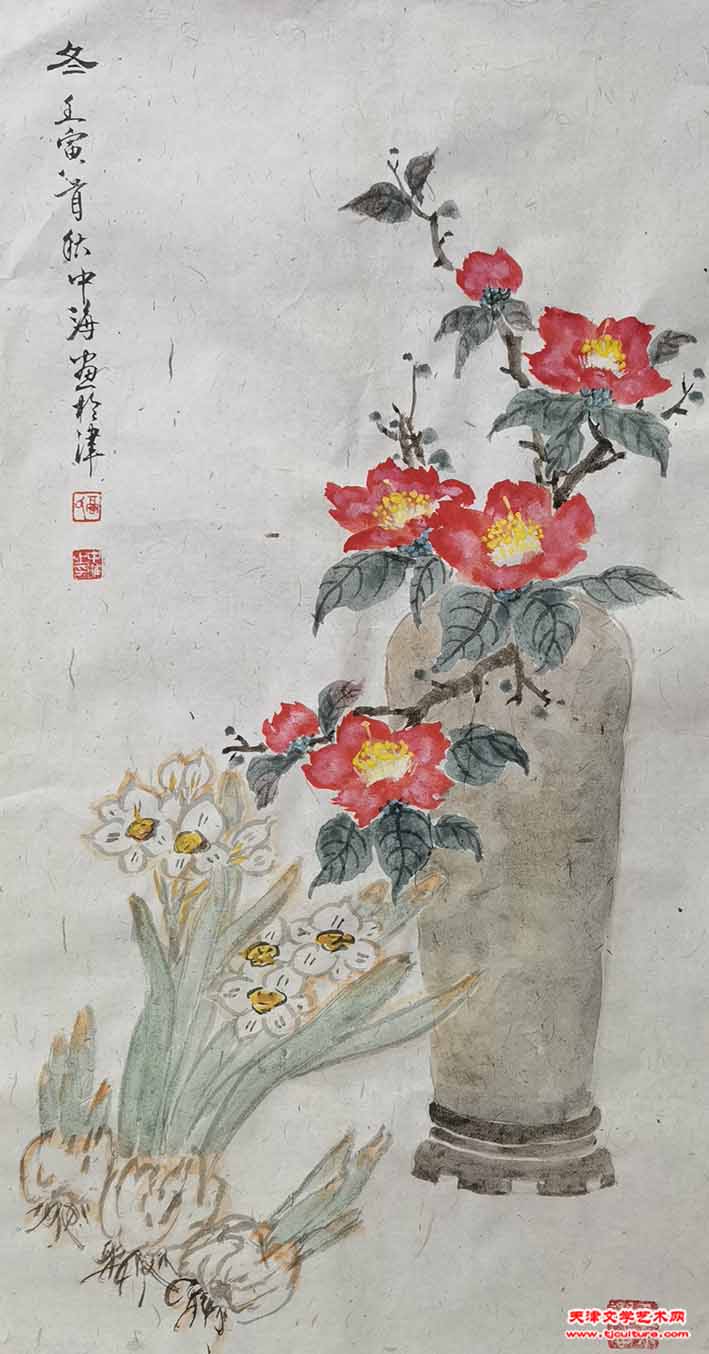 冬 壬寅首秋中海画於津
天津文学艺术网
www.tjculture.com